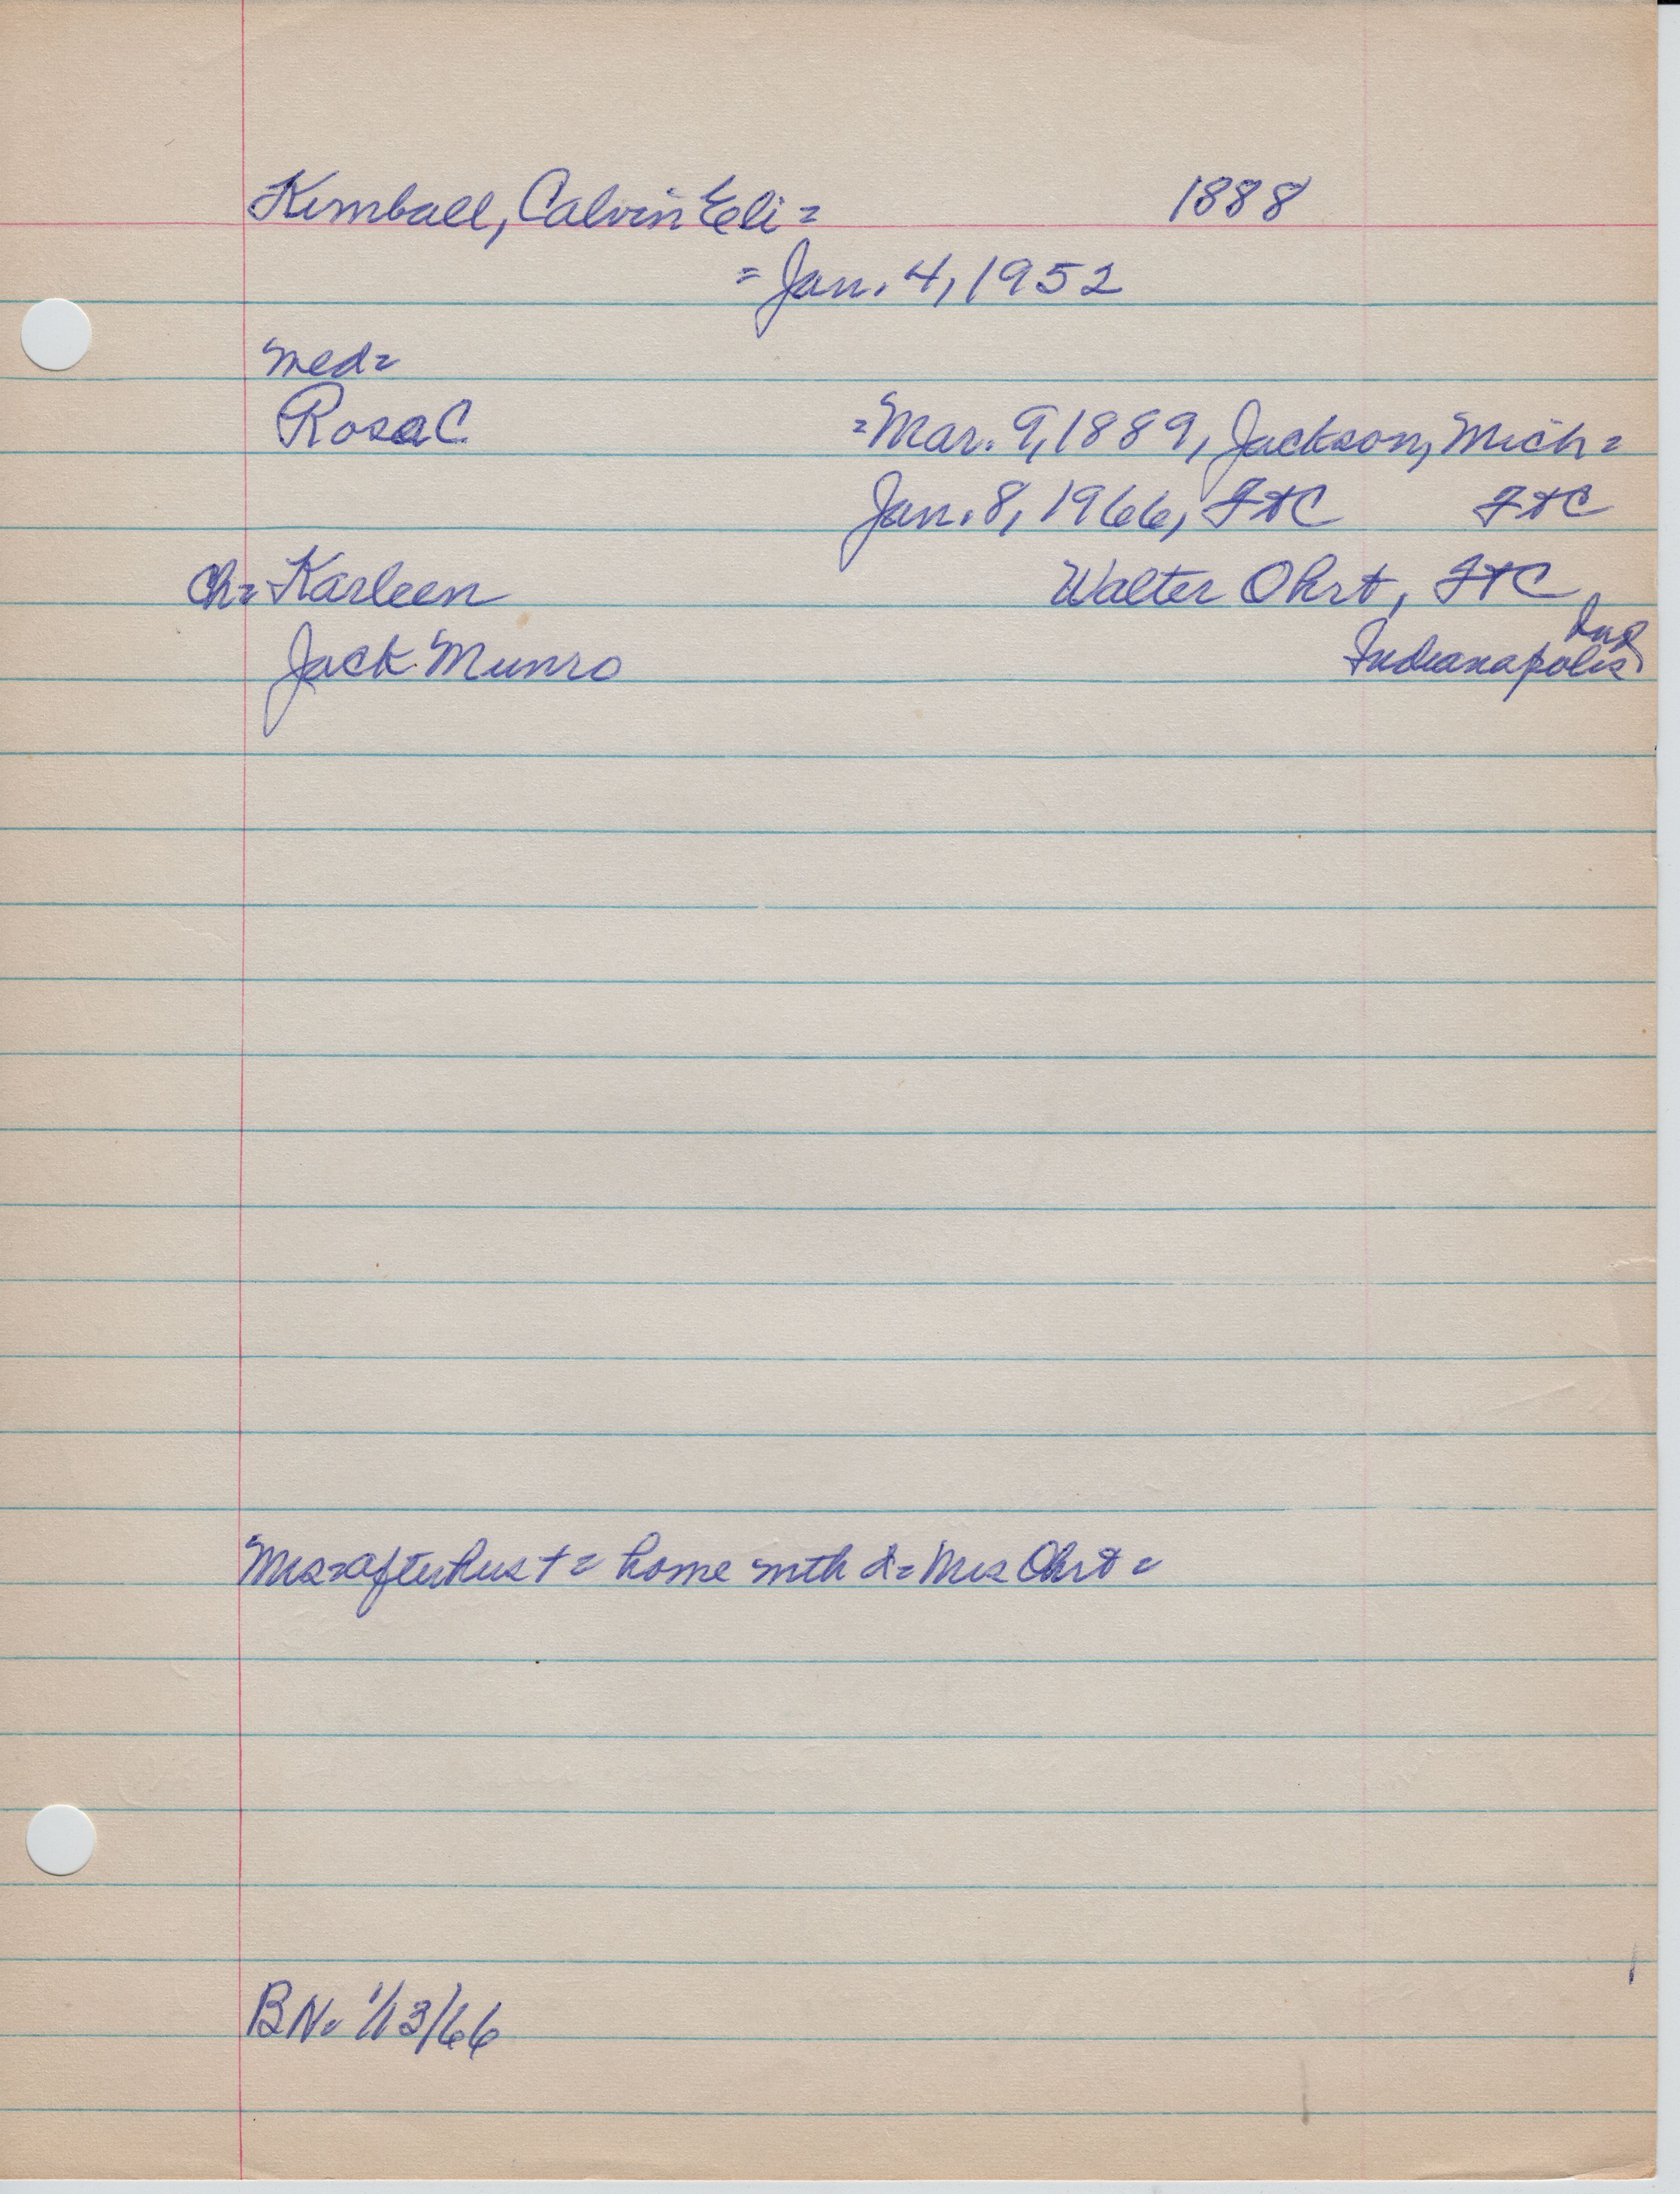 Kimball, Calvin Eli = 1888
= Jan. 4, 1952
med=
Rosa C. =Mar. 9, 1889, Jackson, Mich=
Jan. 8, 1966, FtC FtC
Ch= Karleen Walter Ohrt, FtC
Jack Munro Indianapolis, Ind
Mrs=after hus t= home with d= Mrs Ohrt=
BN. 1/13/66